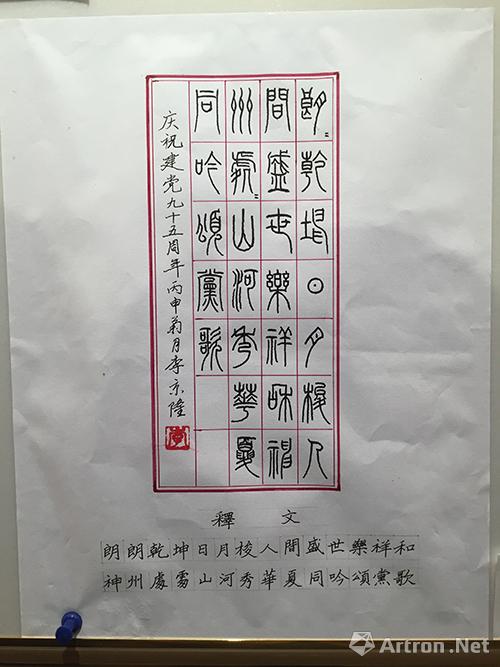 朗〻乾坤日月梭人
間盛世樂祥和神
州處〻山河秀華夏
同吟頌黨歌
庆祝建党九十五周年丙申菊月李京隆
釋文
朗朗乾坤日月梭人間盛世樂祥和
神州處山河秀華夏同吟頌黨歌
Artron.Net